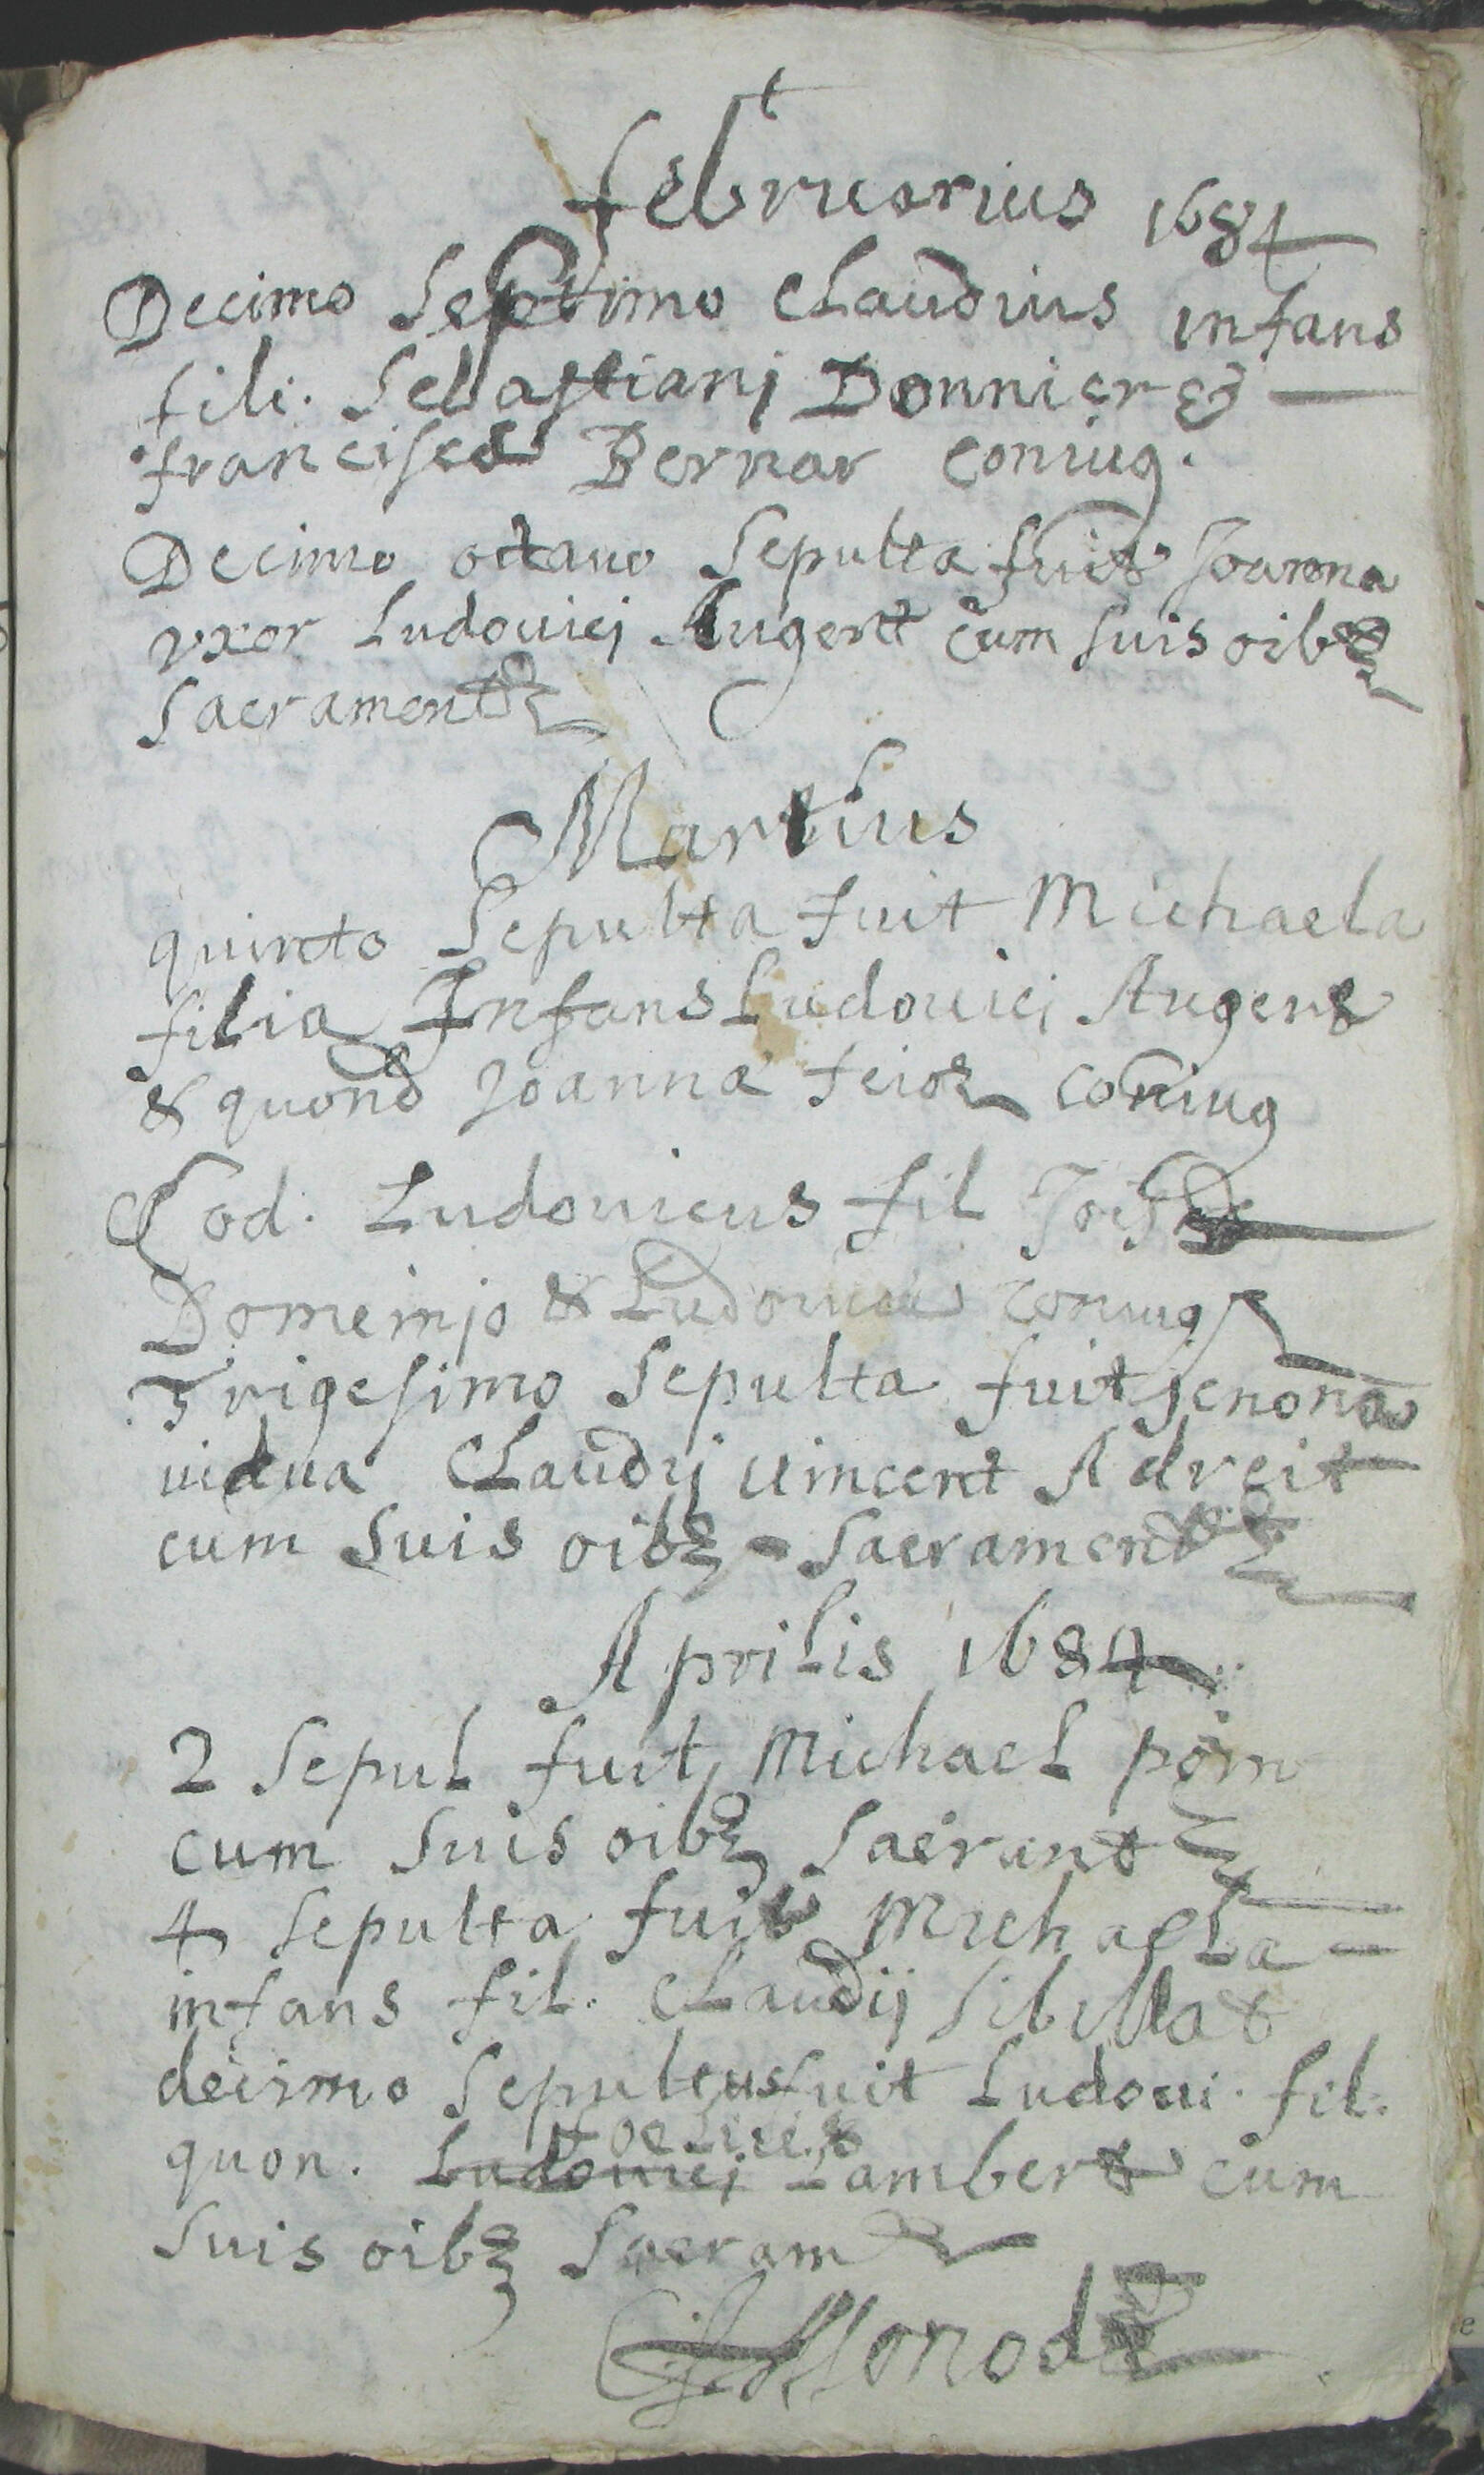 februarius 1684
Decimo Septimo Claudius infans
fili. Sebastianj Donnier &
francisca Bernar coniug.
Decimo octauo Sepulta fuit Joanna
vxor Ludouicj Augert cum suis oib
Sacrament
Martius
quinto Sepulta fuit Michaela
filia Infans Ludouicj Augert
& quond Joannæ coniug
Eod. Ludouicus fil
Domeinjo & Ludouica coniug
Trigesimo Sepulta fuit jenona
uidua Claudij uincent Adreit
cum Suis oib Sacrament
Aprilis 1684
2 Sepul fuit Michael
cum Suis oib Sacramt
4 Sepulta fuit Michaela
infans fil. Claudij Sibillat
decimo Sepultus fuit Ludoui. fil.
quon. Ludouicj Lambert cum
Suis oib Sacram
Monod